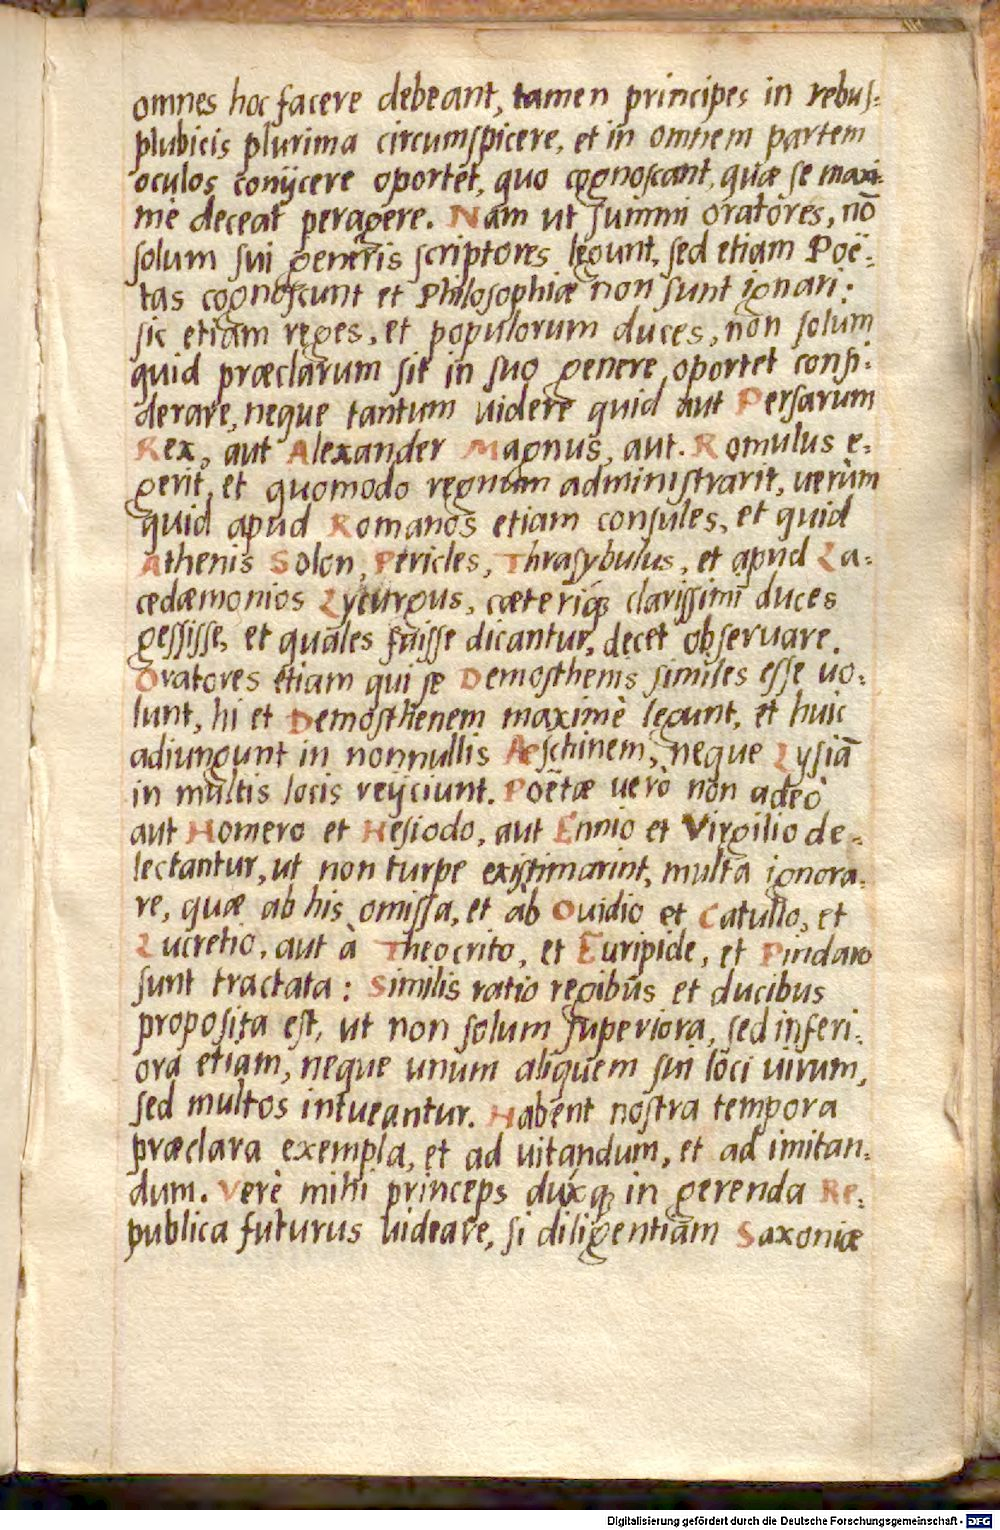 omnes hoc facere debeant, tamen principes in rebus-
plubicis plurima circumspicere, et in omnem partem
oculos conijcere oportet, quo cognoscant, quæ se maxi-
mè deceat peragere. Nam ut summi oratores, nō
solum sui generis scriptores legunt, sed etiam Poë-
tas cognoscunt et Philosophiæ non sunt ignari:
sic etiam reges, et populorum duces, non solum
quid præclarum sit in suo genere oportet consi-
derare, neque tantum uidere quid aut Persarum
Rex, aut Alexander Magnus, aut. Romulus e-
gerit, et quomodo regnum administrarit, uerùm
quid apud Romanos etiam consules, et quid
Athenis Solon, Pericles, Thrasybulus, et apud La-
cedæmonios Lycurgus, cæteriq; clarissimi duces
gessisse, et quales fuisse dicantur, decet obseruare.
Oratores etiam qui se Demosthenis similes esse uo-
lunt, hi et Demosthenem maximè legunt, et huic
adiungunt in nonnullis Aeschinem, neque Lysiā
in multis locis reijciunt. Poëtæ uerò non adeò
aut Homero et Hesiodo, aut Ennio et Virgilio de-
lectantur, ut non turpe existimarint, multa ignora-
re, quæ ab his omissa, et ab Ouidio et Catullo, et
Lucretio, aut à Theocrito, et Euripide, et Pindaro
sunt tractata: Similis ratio regibus et ducibus
proposita est, ut non solum superiora, sed inferi-
ora etiam, neque unum aliquem sui loci uirum,
sed multos intueantur. Habent nostra tempora
præclara exempla, et ad uitandum, et ad imitan-
dum. Verè mihi princeps duxq; in gerenda Re-
publica futurus uideare, si diligentiam Saxoniæ
Digitalisierung gefördert durch die Deutsche Forschungsgemeinschaft - DFG